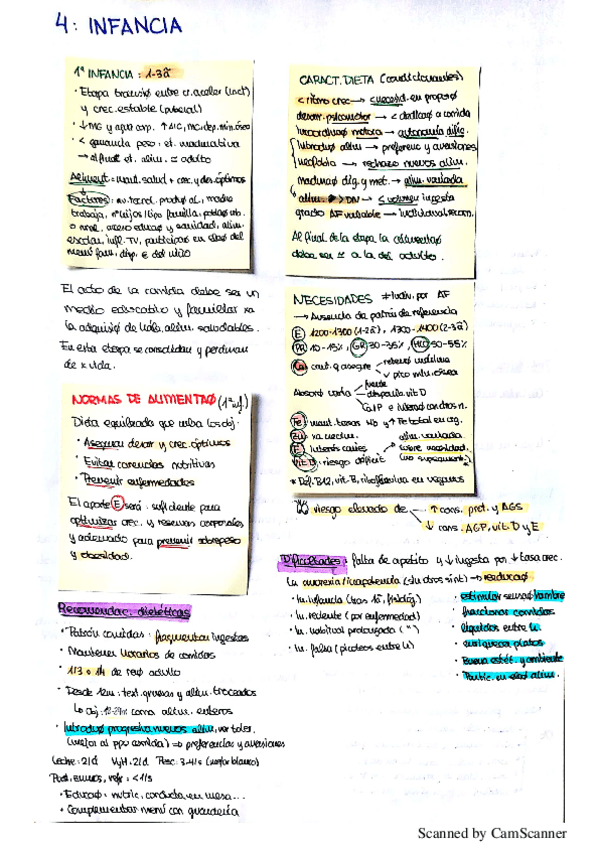 4: INFANCIA
1ª INFANCIA: 1-3a
· Etapa transiø entre cr. aceler(lact)
y crec. estable (puberal)
· ↓MG y agua corp. ↑ MC, dep. min. óseo
· < ganancia peso: et. madurativa
→ al final et. alim. ≃ adulto
Aliment = mant. salud + crec. y des. óptimos
Factores: nv. tecnol. produø al., madre
trabaja, nº hijos/tipo familia,
o rural, acceso educaø y sanidad, alim.
escolar, infl. TV, participaø en elaø del
menú fam, disp. e del niño
El acto de la comida debe ser un
medio educativo y familiar xa
la adquisiø de háb. alim. saludables.
En esta etapa se consolidan y perduran
de x vida.
NORMAS DE ALIMENTAø (1ª inf.)
Dieta equilibrada que cubra los obj:
· Asegurar desarr y crec. óptimos
· Evitar carencias nutritivas
· Prevenir enfermedades
El aporte E será suficiente para
optimizar crec. y reservas corporales
y adecuado para prevenir sobrepeso
y obesidad.
Recomendac. dietéticas
· Patrón comidas: fragmentar ingestas
· Mantener horarios de comidas
· 1/3 o 1/4 de raø adulto
· Desde 12m: text. gruesas y alim. troceados
↳ Obj: 18-24m coma alim. enteros
· Introducø progresiva nuevos alim, ver toler.
(mejor al ppo comida) ⇒ preferencias y aversiones
Leche: 2/d VyH: 2/d Pesc: 3-4/s (mejor blanco)
Past, zumos, refr: <1/s
· Educaø: nutric, conducta en mesa...
· Complementar menú con guardería
CARACT. DIETA (condicionantes)
< ritmo crec → < necesid. en proporø
desarr. psicomotor → < dedicaø a comida
Incoordinaø motora → autonomía difíc.
Introduø alim → preferenc y aversiones
neofobia → rechazo nuevos alim.
maduraø dig. y met. → alim. variada
alim. > DN → < volumen ingesta
grado AF variable → individual. recom.
Al final de la etapa la alimentaø
debe ser ≃ a la del adulto.
NECESIDADES ≠ indiv. por AF
→ Ausencia de patrón de referencia
E 1200-1300 (1-2a), 1300-1400 (2-3a)
PR 10-15%, GR 30-35%, HC 50-55%
Ca cant. q asegure
pico mín. ósea
Absorø varía
fuente
disponib. vit D
Ca/P e interacø con otros n.
Fe: mant. tasas Hb y ↑ Fe total en org.
Zn: xa crecim.
F: interés caries
Vit D: riesgo déficit
alim. variada
cubre necesidad.
(no suplement.)
* Déf. B12, vit. B, riboflavina en veganos
riesgo elevado de
↑ cons. prot. y AGS
↓ cons. AGP, vit. D y E
Dificultades: falta de apetito y ↓ ingesta por ↓ tasa crec.
La anorexia/inapetencia (sin otros sínt) → reeducaø
· In. infancia (tras 1a, fisiológ.)
· In. reciente (por enfermedad)
· In. habitual prolongada (")
· In. falsa (picoteos entre h)
· estimular sensaø hambre
· fraccionar comidas
· líquidos entre h.
· cualquier platos
· Buena estét. y ambiente
· Partic. en elaø alim.
Scanned by CamScanner